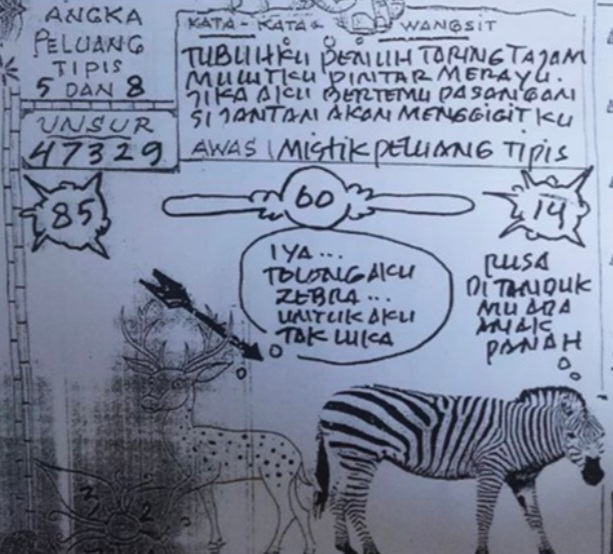 ANGKA
PELUANG
TIPIS
5 DAN 8
UNSUR
47329
KATA - KATA WANGSIT
TUBUHKU PENUH TARING TAJAM
MULUTKU PINTAR MERAYU.
JIKA AKU BERTEMU PASANGAN
SI JANTAN AKAN MENGGIGITKU
AWAS! MISTIK PELUANG TIPIS
85
60
14
IYA...
TOLONG AKU
ZEBRA...
UNTUK AKU
TAK LUKA
RUSA
DI TANDUK
MU ADA
ANAK
PANAH
3
2 2